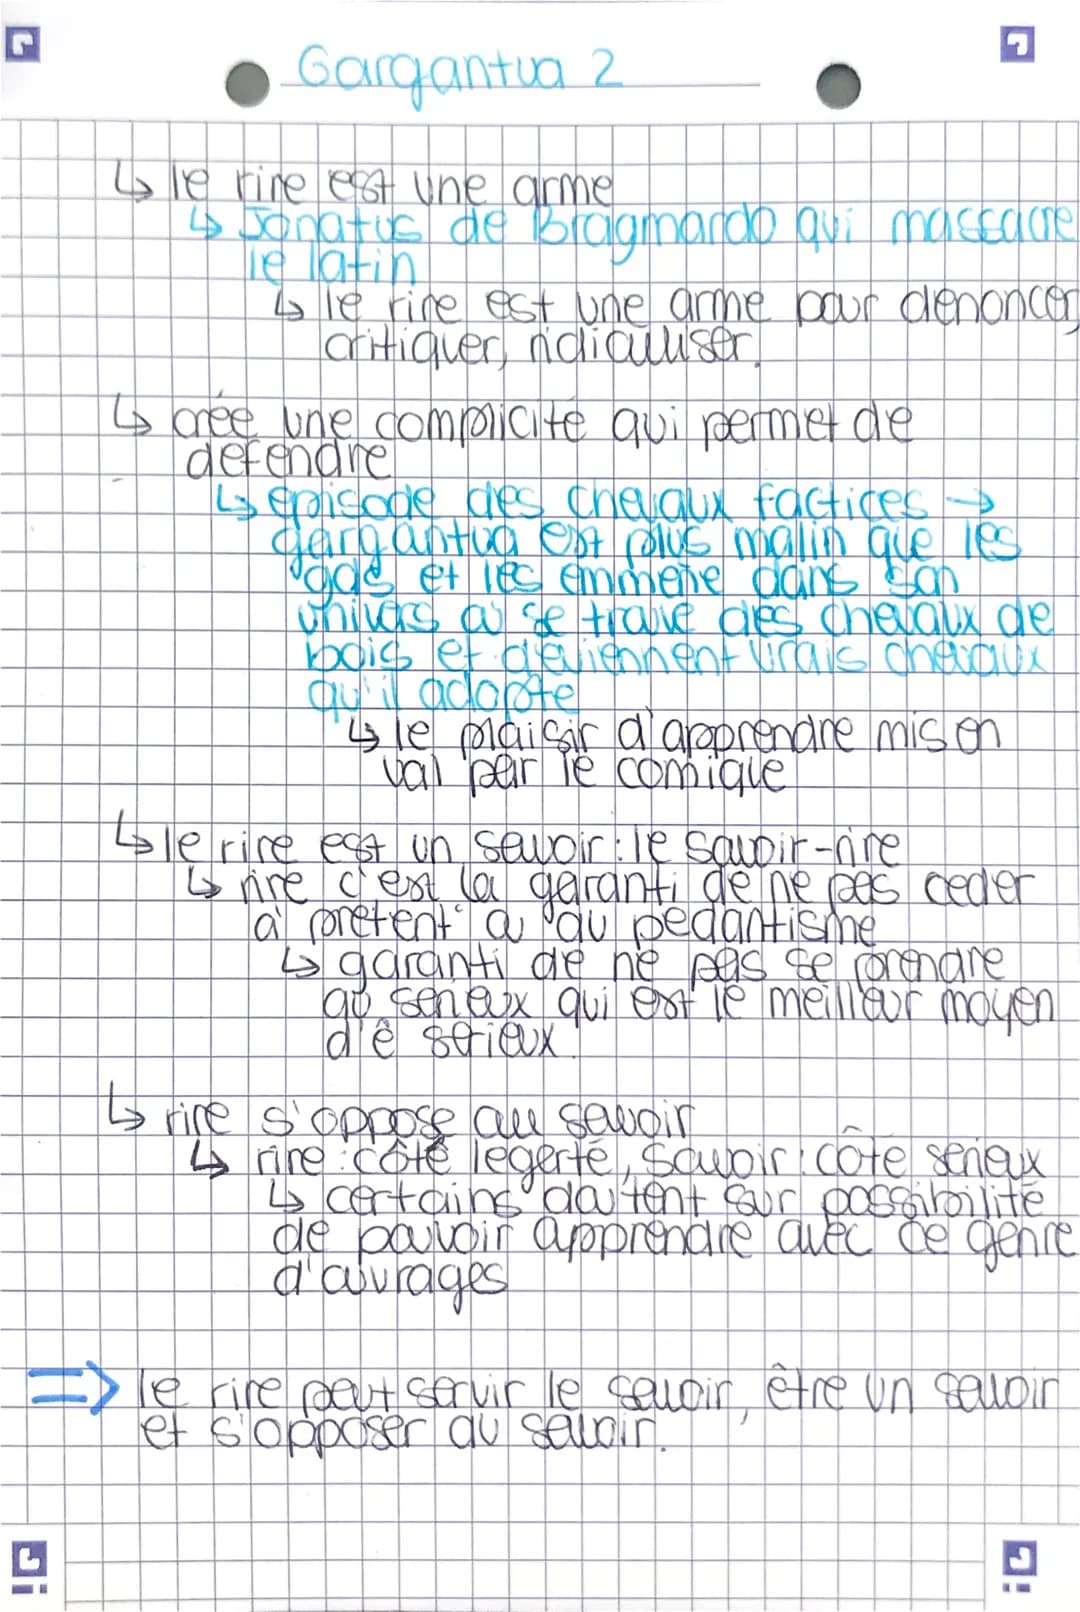 Gargantua 2
↳ le rire est une arme
↳ Jonatus de Bragmardo qui massacre
le latin
↳ le rire est une arme pour dénoncer,
critiquer, ridiculiser.
↳ crée une complicité qui permet de
défendre
↳ épisode des chevaux factices →
gargantua est plus malin que les
gds et les emmène dans son
univers où se trouve des chevaux de
bois et deviennent vrais chevaux
qu'il adopte
↳ le plaisir d'apprendre mis en
val par le comique
↳ le rire est un savoir : le savoir-rire
↳ rire c'est la garanti de ne pas céder
à prétent° ou au pédantisme
↳ garanti de ne pas se prendre
au sérieux qui est le meilleur moyen
d'ê sérieux.
↳ rire s'oppose au savoir
↳ rire : côté légerté, savoir : côté sérieux
↳ certains doutent sur possibilité
de pouvoir apprendre avec ce genre
d'ouvrages
⇒ le rire peut servir le savoir, être un savoir
et s'opposer au savoir.